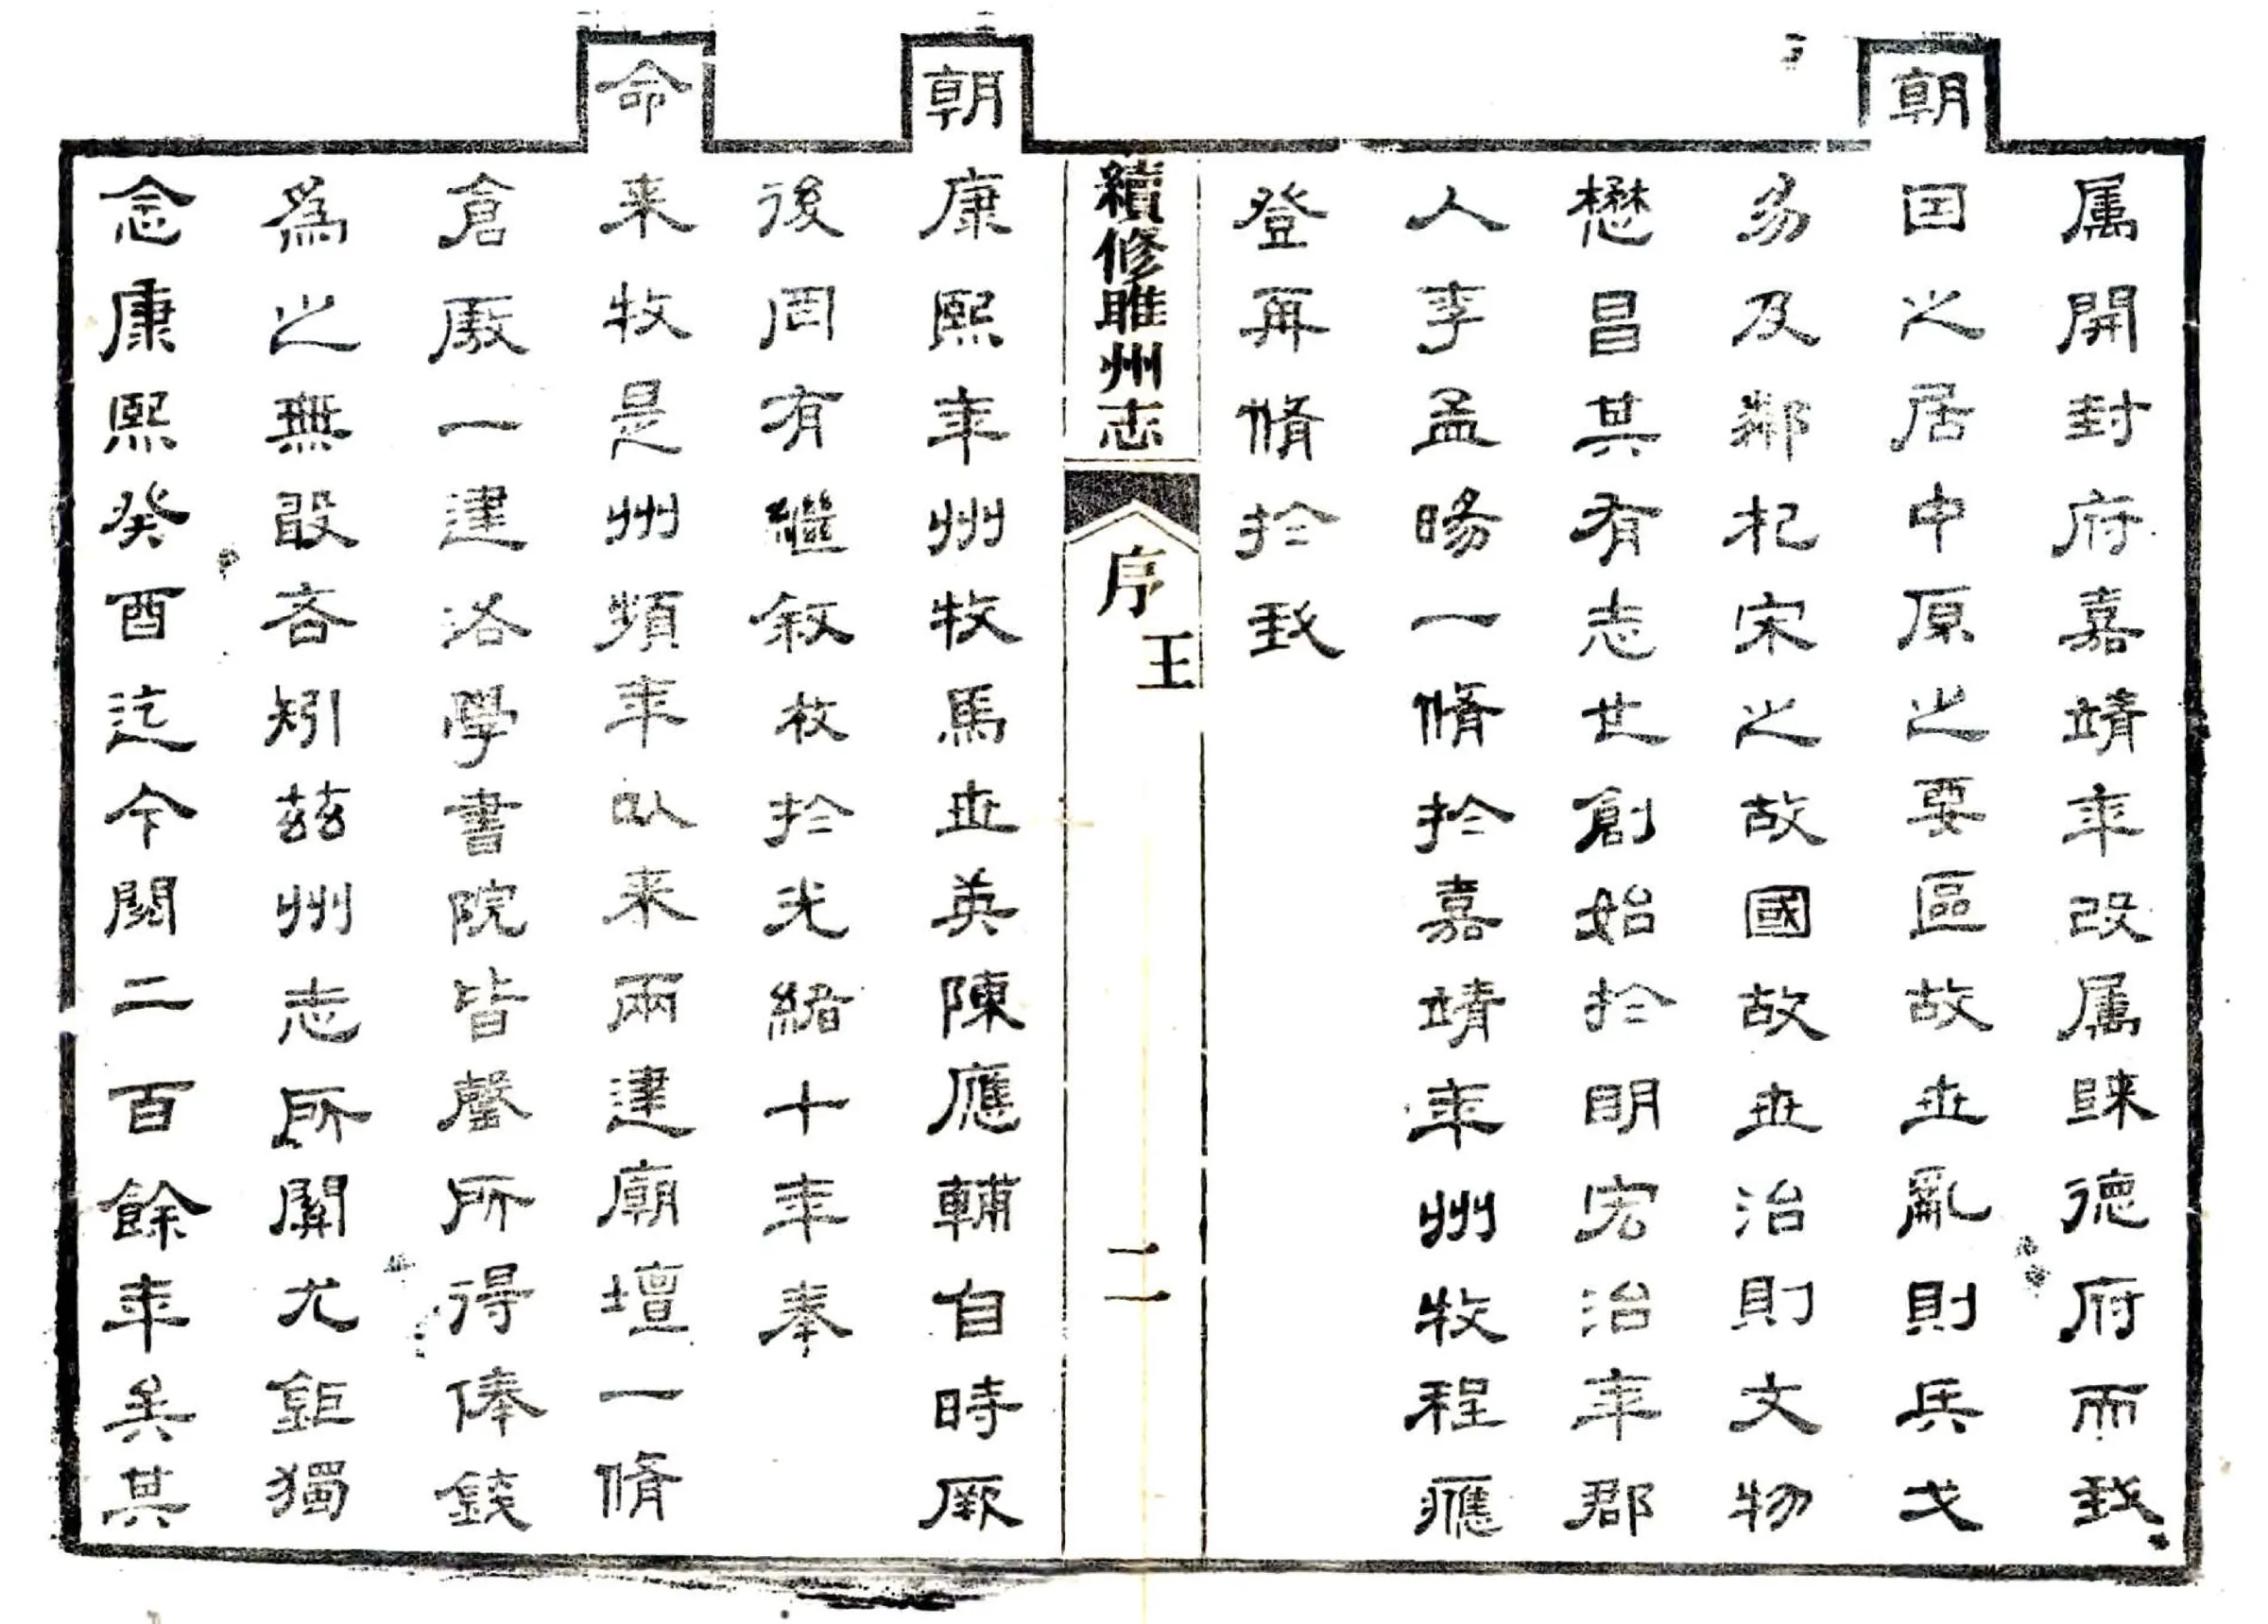 属開封府嘉靖年改属歸德府而我
朝因之居中原之要區故世亂則兵戈
易及鄰杞宋之故國故世治則文物
懋昌其有志也創始於明宏治年郡
人李孟暘一脩於嘉靖年州牧程應
登再脩於我
續修睢州志
序
王
二
朝康熙年州牧馬世英陳應輔自時厥
後罔有繼敘枚於光緒十年奉
命来牧是州頻年以来兩建廟壇一脩
倉厫一建洛學書院皆罄所得俸錢
為之無敢吝矧茲州志所關尤鉅獨
念康熙癸酉迄今閱二百餘年矣其